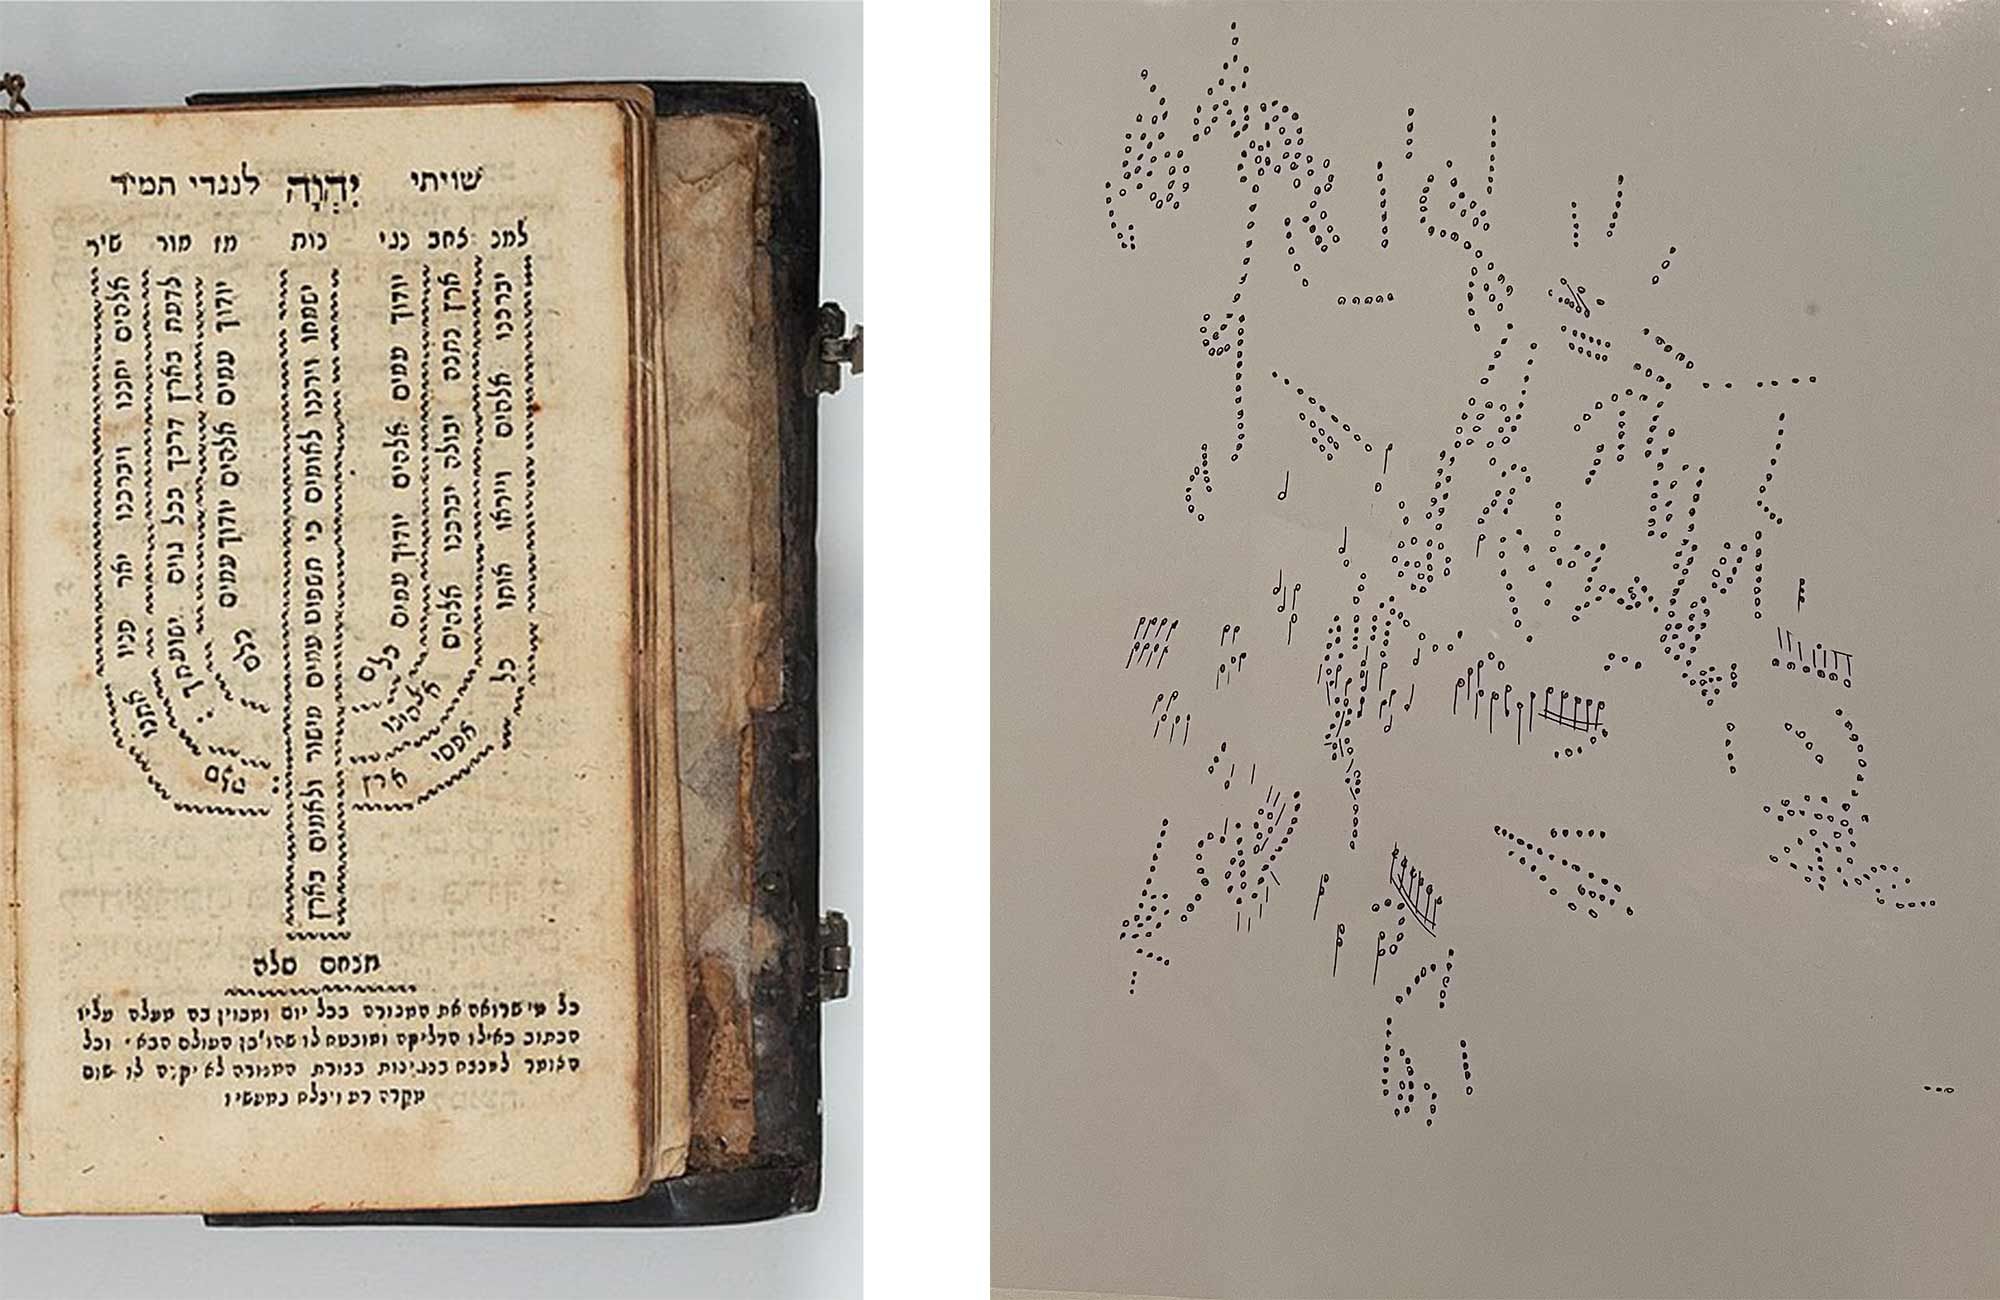 שויתי יִהְוָה לנגדי תמיד
למנ צחב נגי נות מז מור שיר
יברכנו אלהים וייראו אותו כל אפסי ארץ
ארץ נתנה יבולה יברכנו אלהים אלהינו
יודוך עמים אלהים יודוך עמים כלם
ישמחו וירננו לאומים כי תשפוט עמים מישור ולאמים בארץ
יודוך עמים אלהים יודוך עמים כלם
לדעת בארץ דרכך בכל גוים ישועתך:
אלהים יחננו ויברכנו יאר פניו אתנו סלה:
תנחם סלה
כל מי שרואה את המנורה בכל יום ומכוין בה מעלה עליו
הכתוב כאילו הדליקה ומובטח לו שהו' בן העולם הבא · וכל
האומר למנצח בנגינות בצורת המנורה לא יקרה לו שום
מקרה רע ויצלח במעשיו